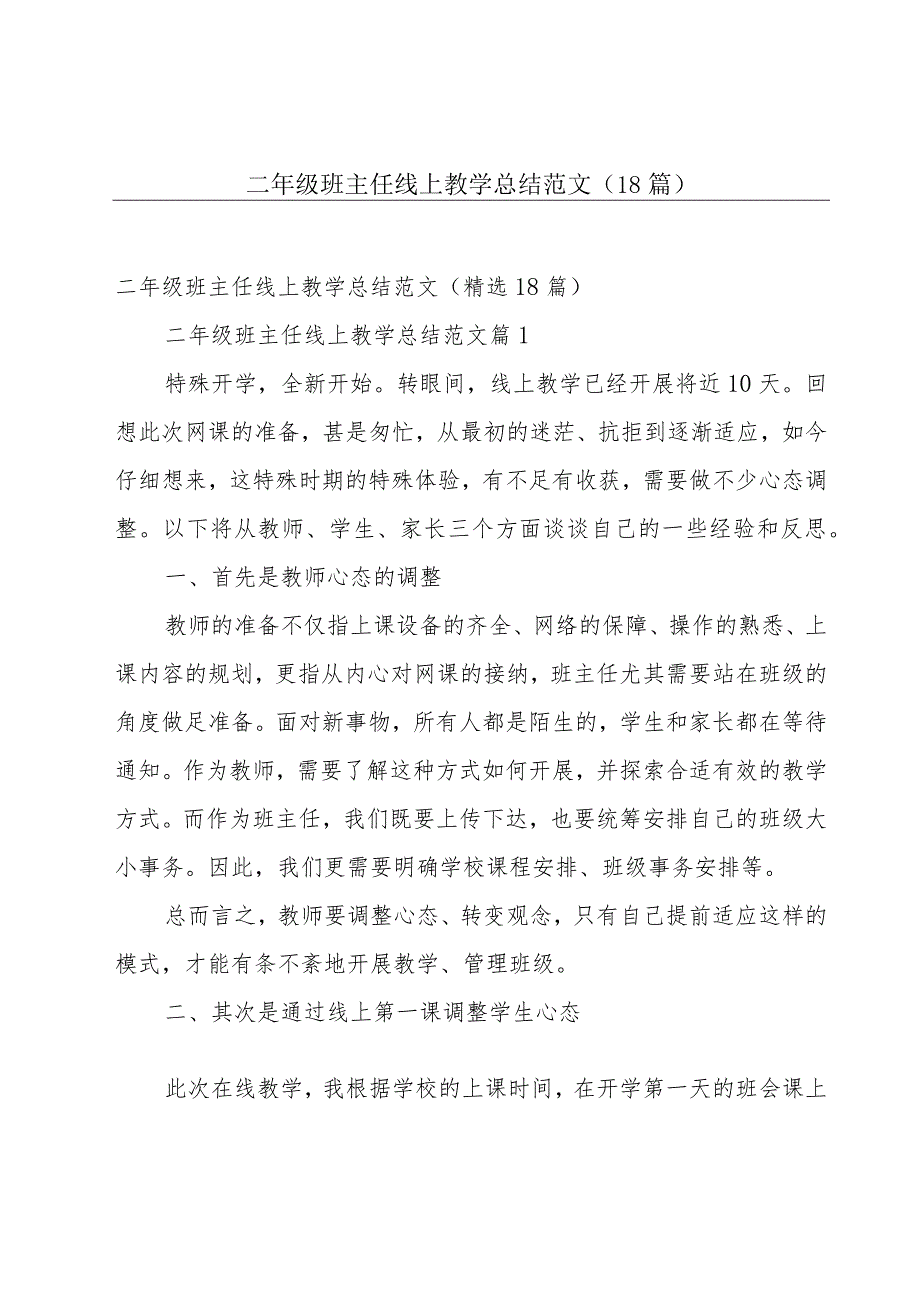 二年级班主任线上教学总结范文（18 篇）
二年级班主任线上教学总结范文（精选 18 篇）
二年级班主任线上教学总结范文篇 1
特殊开学，全新开始。转眼间，线上教学已经开展将近 10 天。回
想此次网课的准备，甚是匆忙，从最初的迷茫、抗拒到逐渐适应，如今
仔细想来，这特殊时期的特殊体验，有不足有收获，需要做不少心态调
整。以下将从教师、学生、家长三个方面谈谈自己的一些经验和反思。
一、首先是教师心态的调整
教师的准备不仅指上课设备的齐全、网络的保障、操作的熟悉、上
课内容的规划，更指从内心对网课的接纳，班主任尤其需要站在班级的
角度做足准备。面对新事物，所有人都是陌生的，学生和家长都在等待
通知。作为教师，需要了解这种方式如何开展，并探索合适有效的教学
方式。而作为班主任，我们既要上传下达，也要统筹安排自己的班级大
小事务。因此，我们更需要明确学校课程安排、班级事务安排等。
总而言之，教师要调整心态、转变观念，只有自己提前适应这样的
模式，才能有条不紊地开展教学、管理班级。
二、其次是通过线上第一课调整学生心态
此次在线教学，我根据学校的上课时间，在开学第一天的班会课上